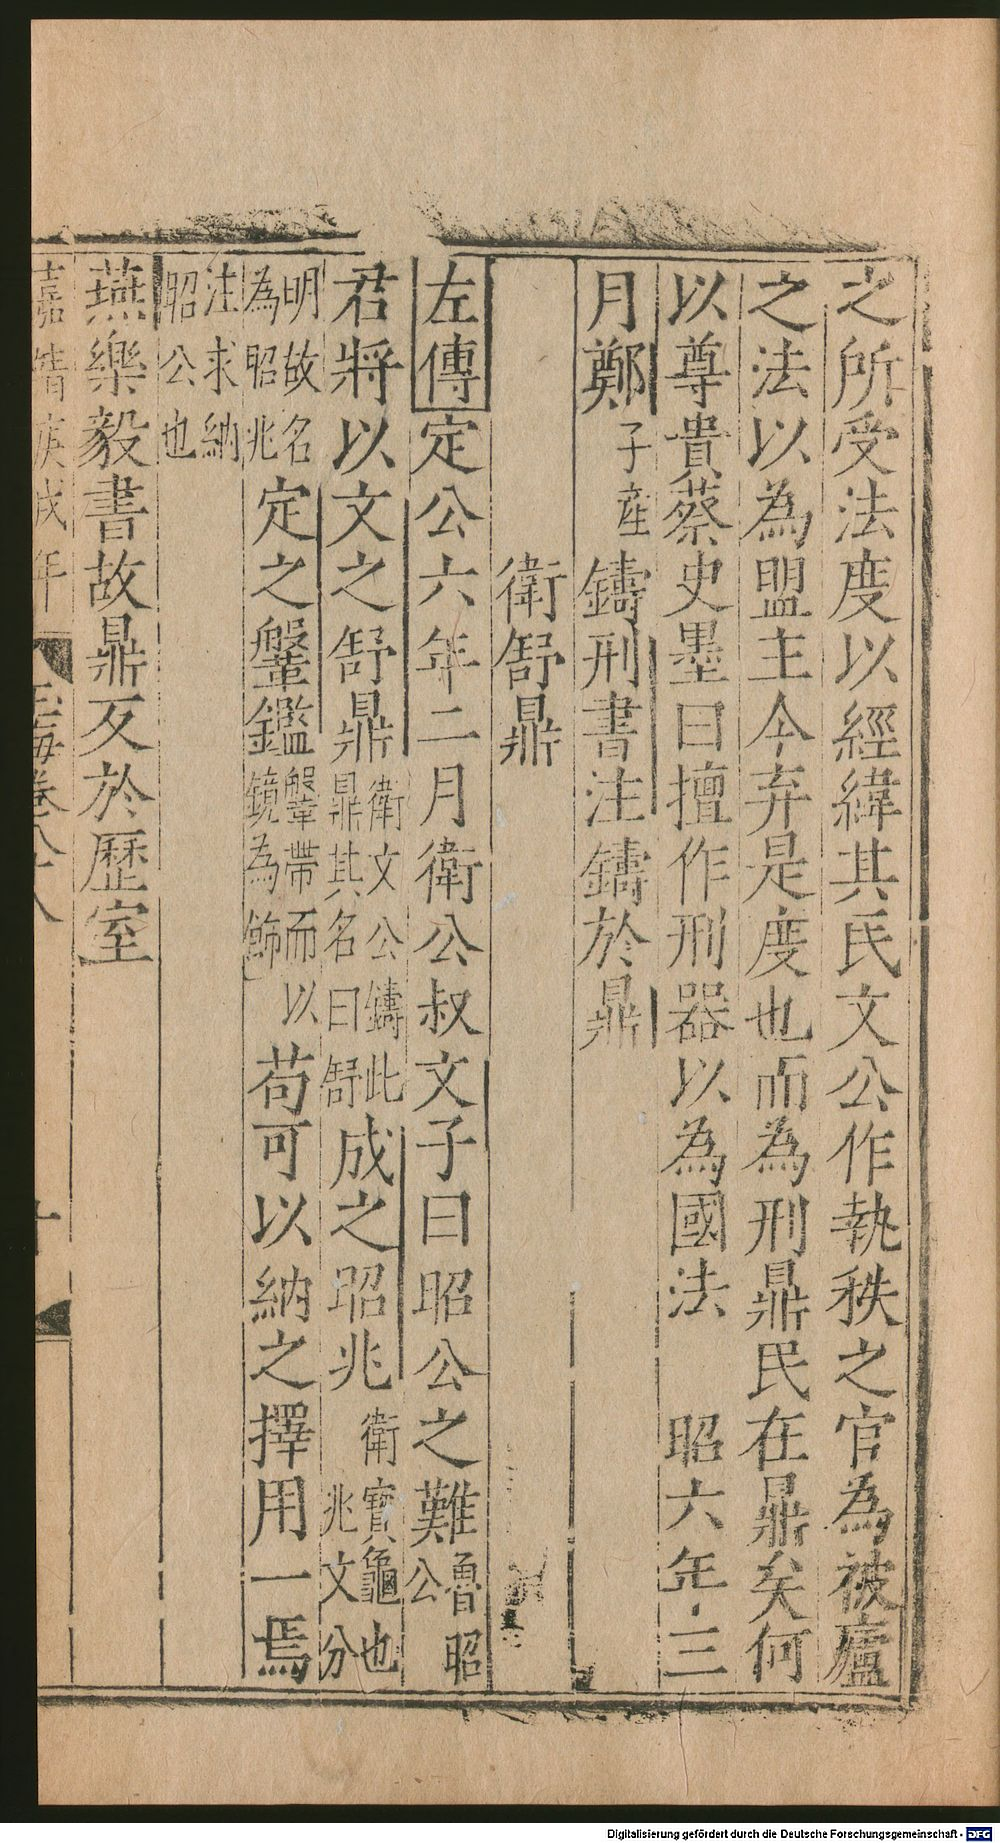 之所受法度以經緯其民文公作執秩之官為被廬
之法以為盟主今弃是度也而為刑鼎民在鼎矣何
以尊貴蔡史墨曰擅作刑器以為國法　昭六年三
月鄭子産鑄刑書注鑄於鼎
衛舒鼎
左傳定公六年二月衛公叔文子曰昭公之難魯昭公
君將以文之舒鼎衛文公鑄此鼎其名曰舒成之昭兆衛寶龜也兆文分
明故名為昭兆定之鞶鑑鞶帶而以鏡為飾苟可以納之擇用一焉
注求納昭公也
燕樂毅書故鼎反於歴室
嘉靖 戌年 玉海卷八十八 十
Digitalisierung gefördert durch die Deutsche Forschungsgemeinschaft - DFG